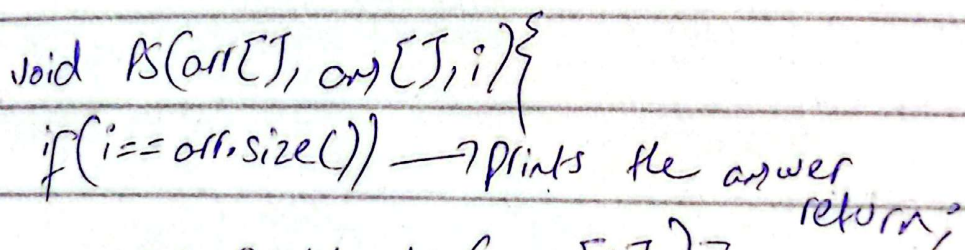 void PS(arr[], ans[], i){
if(i==arr.size()) → prints the answer
return;